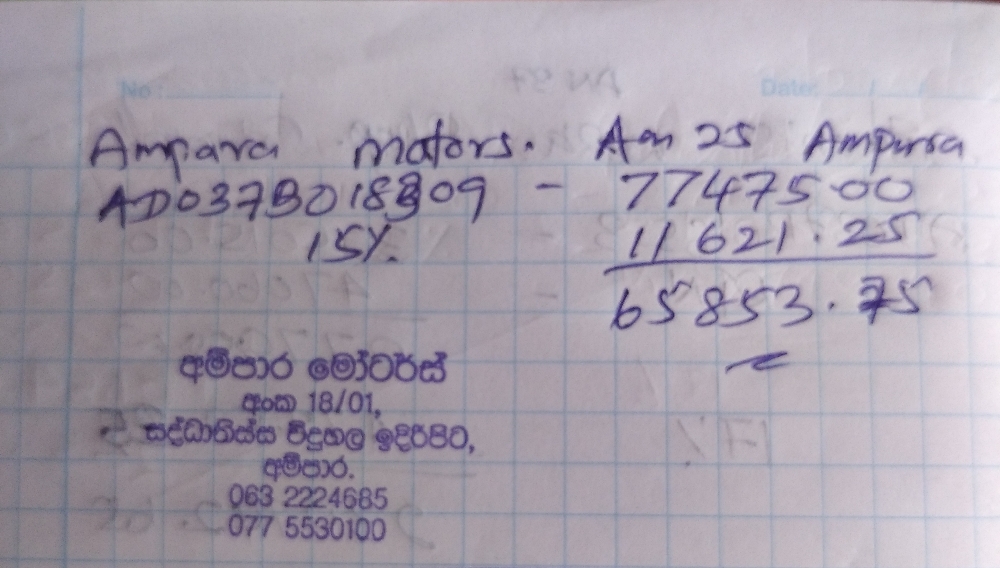 No: Date: / /
Ampara motors. Am 25 Ampura
AD037B018309 - 77475.00
15%. 11 621.25
65853.75
අම්පාර මෝටර්ස්
අංක 18/01,
සද්ධාතිස්ස විදුහල ඉදිරිපිට,
අම්පාර.
063 2224685
077 5530100